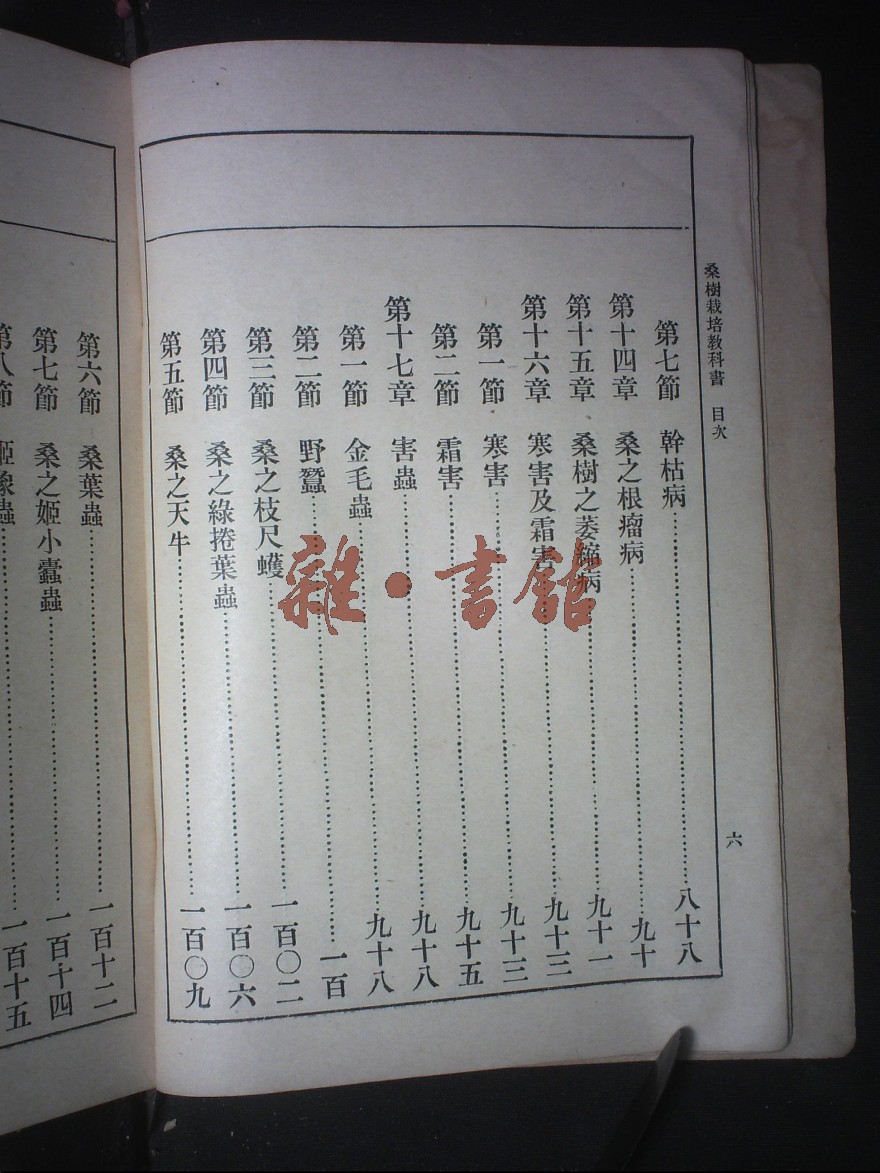 桑樹栽培教科書 目次
六
第七節 幹枯病 八十八
第十四章 桑之根瘤病 九十
第十五章 桑樹之萎縮病 九十一
第十六章 寒害及霜害 九十三
第一節 寒害 九十三
第二節 霜害 九十五
第十七章 害蟲 九十八
第一節 金毛蟲 九十八
第二節 野蠶 一百
第三節 桑之枝尺蠖 一百〇二
第四節 桑之綠捲葉蟲 一百〇六
第五節 桑之天牛 一百〇九
第六節 桑葉蟲 一百十二
第七節 桑之姬小蠹蟲 一百十四
第八節 姬象蟲 一百十五
雜·書館